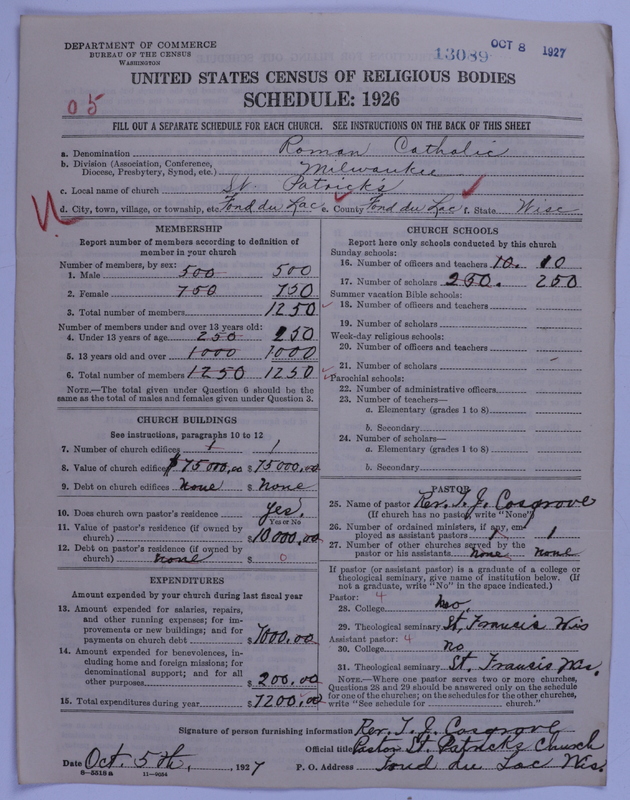 DEPARTMENT OF COMMERCE
BUREAU OF THE CENSUS
WASHINGTON
13089
OCT 8 1927
UNITED STATES CENSUS OF RELIGIOUS BODIES
SCHEDULE: 1926
05
FILL OUT A SEPARATE SCHEDULE FOR EACH CHURCH. SEE INSTRUCTIONS ON THE BACK OF THIS SHEET
a. Denomination Roman Catholic
b. Division (Association, Conference, Diocese, Presbytery, Synod, etc.) Milwaukee
c. Local name of church St. Patrick's
d. City, town, village, or township, etc Fond du Lac e. County Fond du Lac f. State Wisc
MEMBERSHIP
Report number of members according to definition of
member in your church
Number of members, by sex:
1. Male 500 500
2. Female 750 750
3. Total number of members 1250
Number of members under and over 13 years old:
4. Under 13 years of age 250 250
5. 13 years old and over 1000 1000
6. Total number of members 1250 1250
NOTE.—The total given under Question 6 should be the
same as the total of males and females given under Question 3.
CHURCH BUILDINGS
See instructions, paragraphs 10 to 12
7. Number of church edifices 1 1
8. Value of church edifices $75000,00 $75000,00
9. Debt on church edifices None $ None
10. Does church own pastor's residence Yes.
Yes or No
11. Value of pastor's residence (if owned by
church) $10000,00
12. Debt on pastor's residence (if owned by
church) none $ 0
EXPENDITURES
Amount expended by your church during last fiscal year
13. Amount expended for salaries, repairs,
and other running expenses; for im-
provements or new buildings; and for
payments on church debt $7000,00
14. Amount expended for benevolences, in-
cluding home and foreign missions; for
denominational support; and for all
other purposes $200,00
15. Total expenditures during year $7200,00
CHURCH SCHOOLS
Report here only schools conducted by this church
Sunday schools:
16. Number of officers and teachers 10. 10
17. Number of scholars 250. 250
Summer vacation Bible schools:
18. Number of officers and teachers
19. Number of scholars
Week-day religious schools:
20. Number of officers and teachers
21. Number of scholars
Parochial schools:
22. Number of administrative officers
23. Number of teachers—
a. Elementary (grades 1 to 8)
b. Secondary
24. Number of scholars—
a. Elementary (grades 1 to 8)
b. Secondary
PASTOR
25. Name of pastor Rev. T. J. Cosgrove
(If church has no pastor, write "None")
26. Number of ordained ministers, if any, em-
ployed as assistant pastors 1 1
27. Number of other churches served by the
pastor or his assistants none none
If pastor (or assistant pastor) is a graduate of a college or
theological seminary, give name of institution below. (If
not a graduate, write "No" in the space indicated.)
Pastor: 4
28. College No,
29. Theological seminary St. Francis Wis
Assistant pastor: 4
30. College No
31. Theological seminary St. Francis Wis.
NOTE.—Where one pastor serves two or more churches,
Questions 28 and 29 should be answered only on the schedule
for one of the churches; on the schedules for the other churches,
write "See schedule for church."
Signature of person furnishing information Rev. T. J. Cosgrove
Official title Pastor St. Patricks Church
Date Oct. 5th, 1927 P. O. Address Fond du Lac Wis.
8-5518a 11-9684